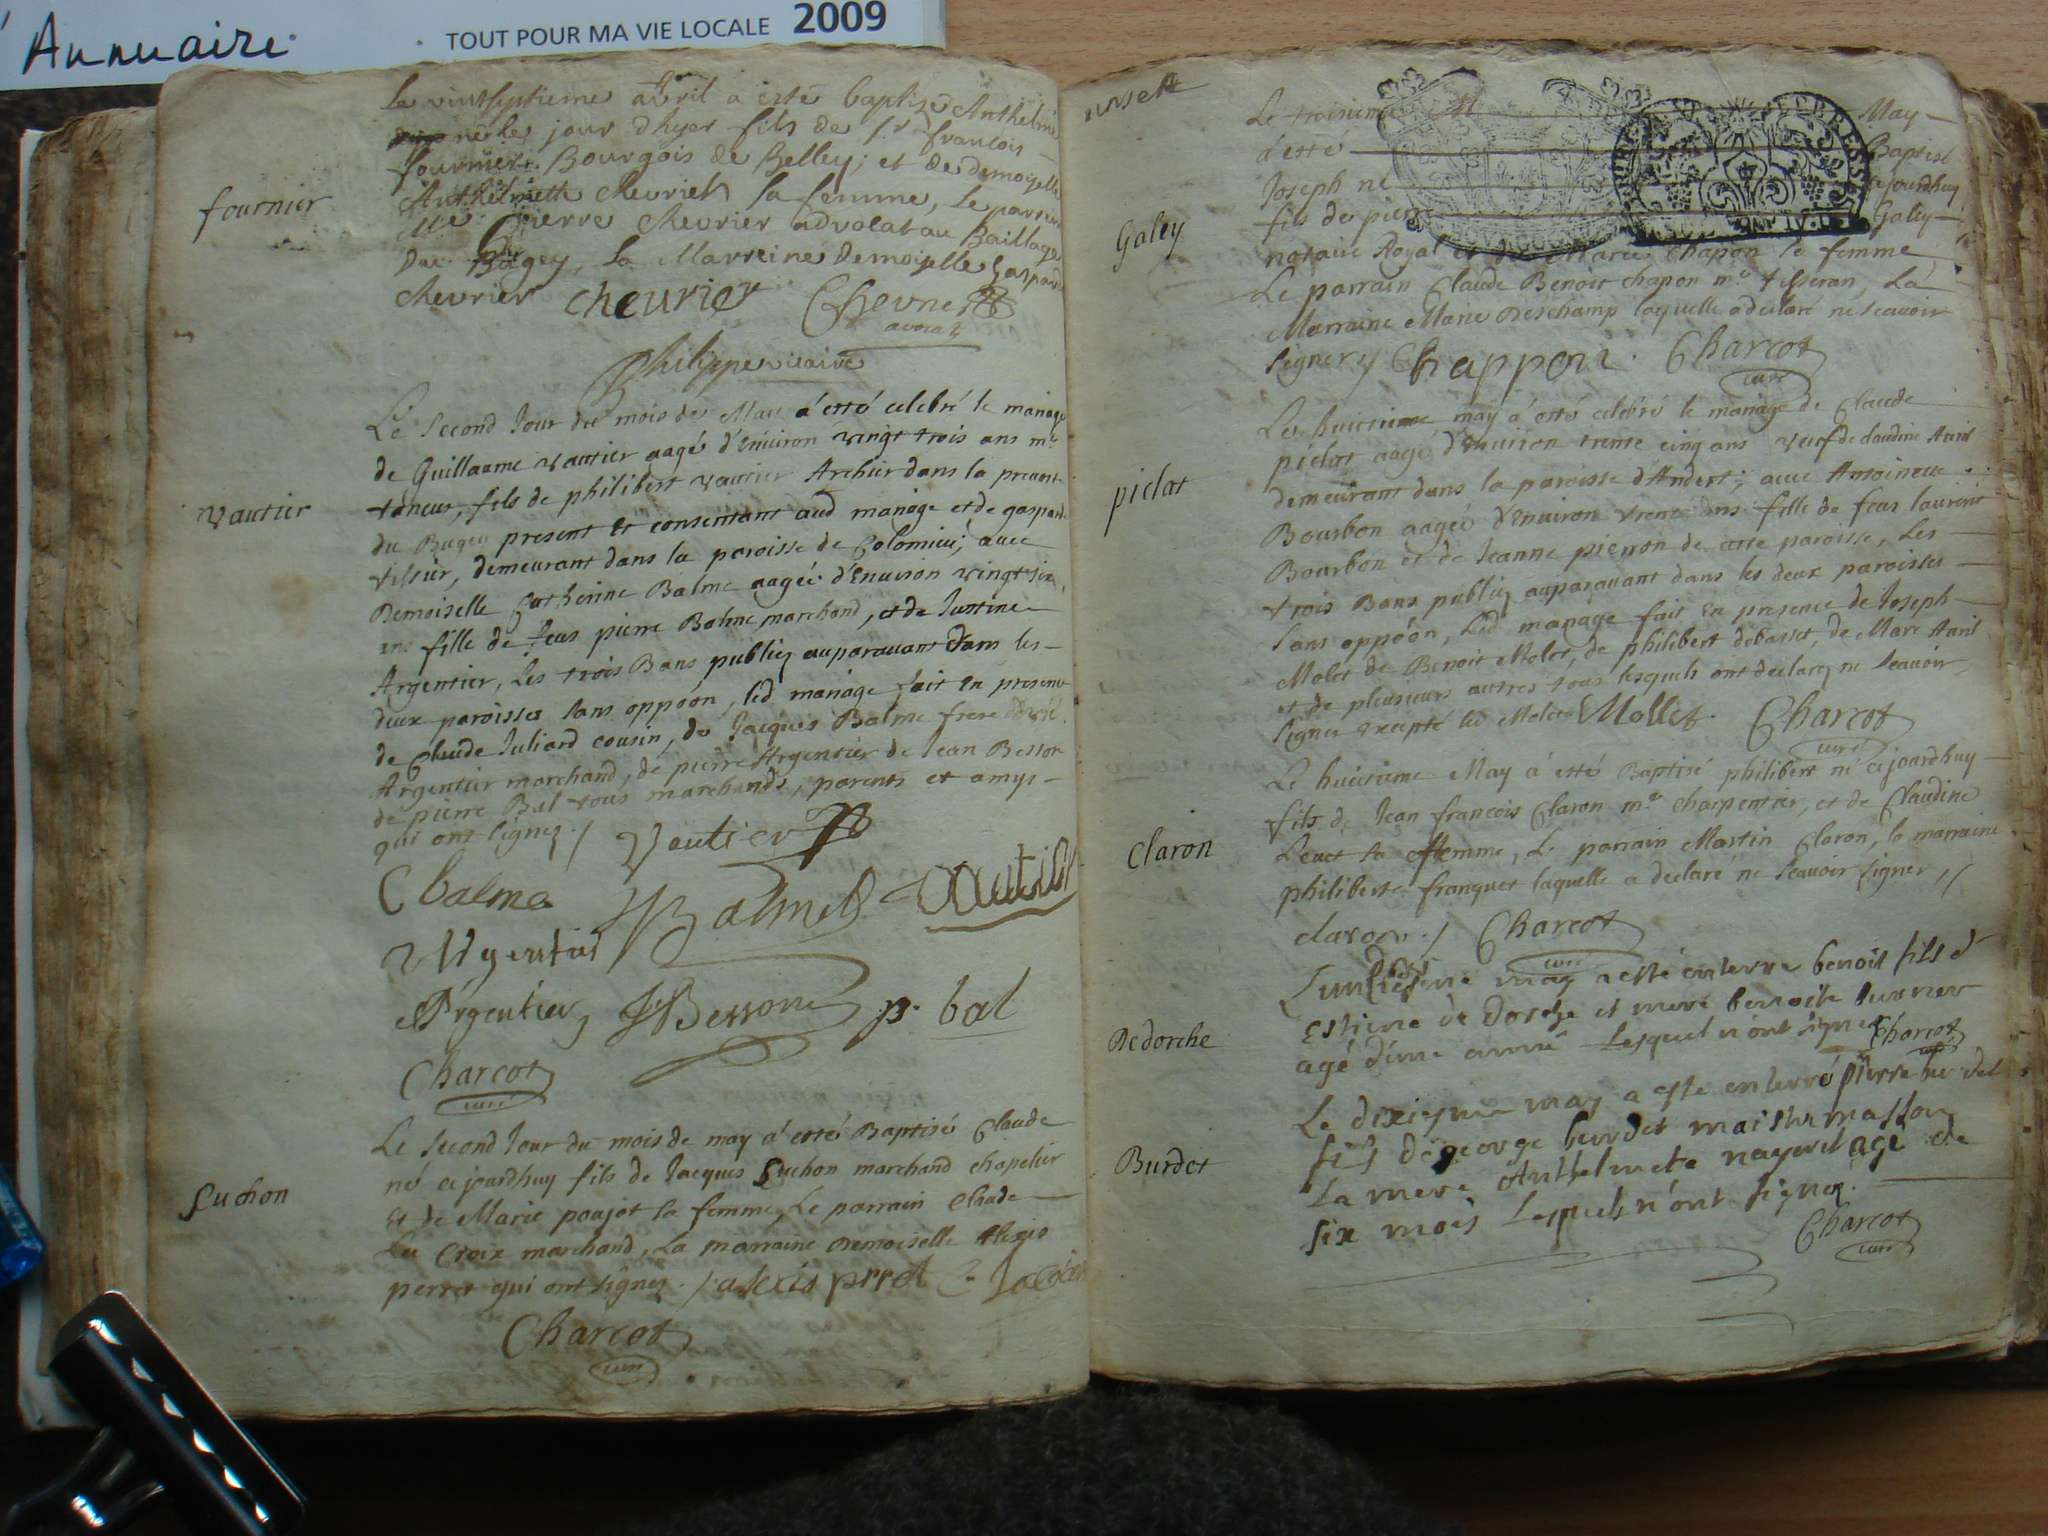 Annuaire
TOUT POUR MA VIE LOCALE 2009
Le vintseptieme avril a esté baptisé Anthelme
né le jour dhyer fils de Sr francois
fournier Bourgois de Belley; et de demoyselle
Anthelmette Chevrier sa femme, Le parrein
fournier
Me Pierre Chevrier advocat au Baillage
Du Bugey, La Marreine Demoyselle Gasparde
Chevrier cheurier Chevrier
avocat
Philippe vicaire
Le Second Jour du mois de May a'esté celebré le mariage
de Guillaume vautier aagé d'Enuiron vingt trois ans mre
taneur, fils de philibert vautier Archier dans la preuosté
vautier
du Bugey present et consentant aud mariage et de gasparde
tissier, demeurant dans la paroisse de Colomieu; auec
Demoiselle Catherine Balme aagée d'Enuiron vingt six
ans fille de feus pierre Balme marchand, et de Justine
Argentier, Les trois Bans publiez auparauant dans les
deux paroisses sans oppoôn, led mariage fait en presence
de Claude Juliard cousin, de Jacques Balme frere
Argentier marchand, de pierre Argentier de Jean Besson
de pierre Bal tous marchands, parents et amys
qui ont signez./ Vautier
C balme Balme Vautier
Argentier
Argentier Bessone p. bal
Charcot
curé
Le Second Jour du mois de may a'esté Baptisé Claude
né cejourdhuy fils de Jacques Luchon marchand chapelier
Luchon
et de Marie poujot sa femme, Le parrain Claude
La Croix marchand, La marraine Demoiselle Alexis
perret qui ont signez./ alexis prret C. Lacroix
Charcot
curé
Le troisieme May
a'esté Baptisé
Joseph né cejourdhuy
fils de pierre Galey
Galey
notaire Royal et de Marie Chapon sa femme
Le parrain Claude Benoit chapon mre tisseran, La
Marraine Marie Deschamp laquelle a declaré ne scauoir
signer / Chappon. Charcot
curé
Le huictieme may a'esté celebré le mariage de Claude
piclat aagé d'Enuiron trente cinq ans veuf de claudine Auril
piclat
demeurant dans la paroisse d'Andert; auec Antoinette
Bourbon aagée d'Enuiron trente ans fille de feus laurent
Bourbon et de Jeanne pierron de cette paroisse, Les
trois Bans publiez auparauant dans les deux paroisses
sans oppoôn, Led mariage fait en presence de Joseph
Molet de Benoit Molet, de philibert debasset, de Marc Auril
et de plusieurs autres tous lesquels ont declarez ne scauoir
signer excepté led Molet Mollet. Charcot
curé
Le huictieme May a'esté Baptisé philibert né cejourdhuy
fils de Jean francois Claron mre charpentier, et de Claudine
Claron
sa femme, Le parrain Martin Claron, la marraine
philiberte franquet laquelle a declaré ne scauoir signer,/
claron./ Charcot
curé
may a esté enterré benoit fils d
Estiene de dorche et mere benoite
Dedorche
agé d'une année Lesquel n'ont signez Charcot
curé
Le dixieme may a esté enterré pierre
fils de george burdet maistre masson
Burdet
La mere Anthelmete agé de
six mois Lesquels n'ont signez.
Charcot
curé